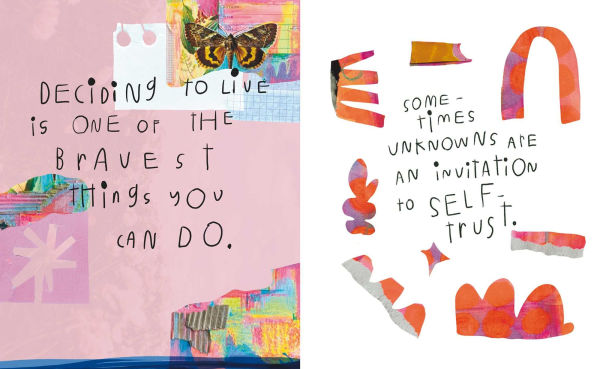 DECiDiNg TO LiVE
is ONE OF THE
BrAVEST
THings YOU
CAN DO.
SOME-
TiMES
UNKNOWNS ARE
AN iNViTATiON
to SELF-
trust.